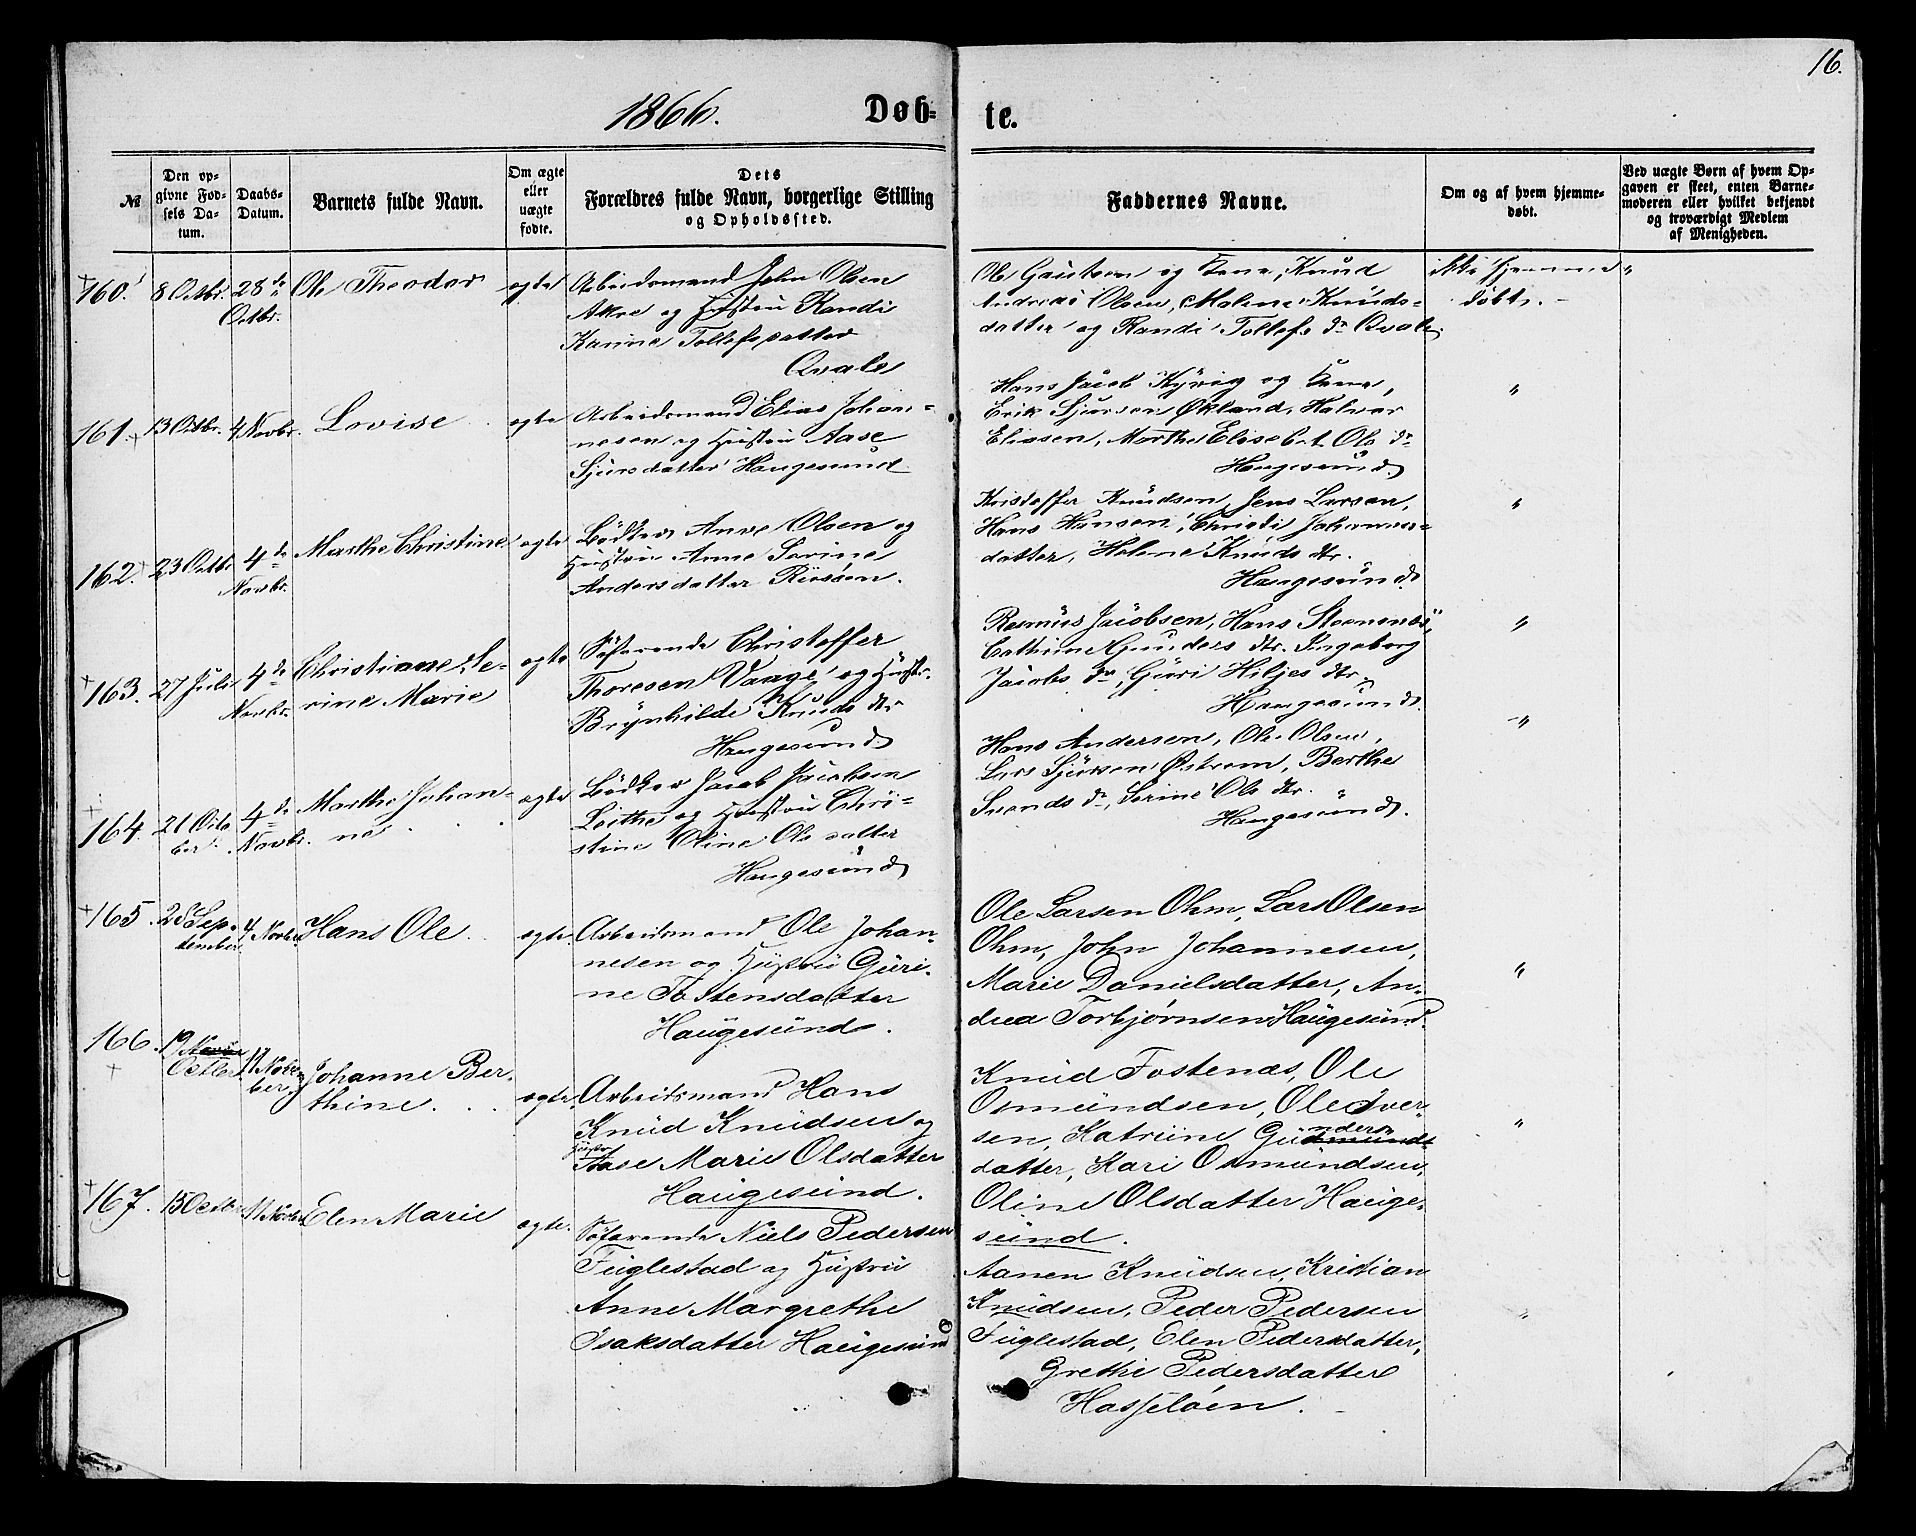 16.
1866. Døb-te.
№
Den opgivne Fødsels Datum.
Daabs-Datum.
Barnets fulde Navn.
Om ægte eller uægte fødte.
Dets Forældres fulde Navn, borgerlige Stilling og Opholdssted.
Faddernes Navne.
Om og af hvem hjemmedøbt.
Ved uægte Børn af hvem Opgaven er skeet, enten Barnemoderen eller hvilket bekjendt og troværdigt Medlem af Menigheden.
160. 8 Octbr. 28de Octbr. Ole Theodor ægte
Arbeidsmand John Olsen
Akre og Hustru Randi
Karine Tollefsdatter
Qvale
Ole Gautsen og Kone, Knud
Andreas Olsen, Malene Knuds-
datter og Randi Tollefs dr Qvale
ikke hjemme
døbt. "
161. 13 Octbr. 4 Novbr. Lovise ægte
Arbeidsmand Elias Johan-
nesen og Hustru Aase
Sjursdatter Haugesund
Hans Jacob Kyvig og Kone,
Erik Sjursen Økland, Halvor
Eliasen, Marthe Elisebet Ols dr
Haugesund
"
162. 23 Octbr. 4de Novbr. Marthe Christine ægte
Bødker Anve Olsen og
Hustru Anne Serine
Andersdatter Risøen.
Kristoffer Knudsen, Jens Larsen,
Hans Hansen, Christi Johannes-
datter, Helene Knuds dtr.
Haugesund.
"
163. 27 Juli 4de Novbr. Christiane Se-
rine Marie ægte
Søfarende Christoffer
Thoresen Vaage og Hustr.
Brynhilde Knuds dtr
Haugesund
Rasmus Jacobsen, Hans Steensnæs,
Cathrine Gunders dtr. Ingeborg
Jacobs dr, Guri Hiljes dtr.
Haugesund.
"
164. 21 Octo
ber. 4de Novbr. Marthe Johan-
ne ægte
Bødker Jacob Jacobsen
Leithe og Hustru Chri-
stine Oline Ols datter
Haugesund
Hans Andersen, Ole Olsen,
Lars Sjursen Østrem, Berthe
Svends dr, Serine Ols dtr.
Haugesund.
"
165. 28 Sep-
tember. 4 Novbr. Hans Ole ægte.
Arbeidsmand Ole Johan-
nesen og Hustru Guri-
ne Tostensdatter
Haugesund.
Ole Larsen Ohm, Lars Olsen
Ohm, John Johannesen,
Marie Danielsdatter, An-
drea Torbjørnsen Haugesund.
"
166. 19 Octbr. 11 Novem-
ber. Johanne Ber-
thine. ægte.
Arbeidsmand Hans
Knud Knudsen og
Hustru
Aase Marie Olsdatter
Haugesund.
Knud Fostenæs, Ole
Osmundsen, Ole Iver-
sen, Katrine Gunders
datter, Kari Osmundsen,
Oline Olsdatter Hauge-
sund.
"
167. 15 Octbr. 11 Novbr. Elen Marie ægte.
Søfarende Niels Pedersen
Fuglestad og Hustru
Anne Margrethe
Isaksdatter Haugesund
Aanen Knudsen, Kristian
Knudsen, Peder Pedersen
Fuglestad, Elen Pedersdatter,
Grethe Pedersdatter
Hasseløen.
"